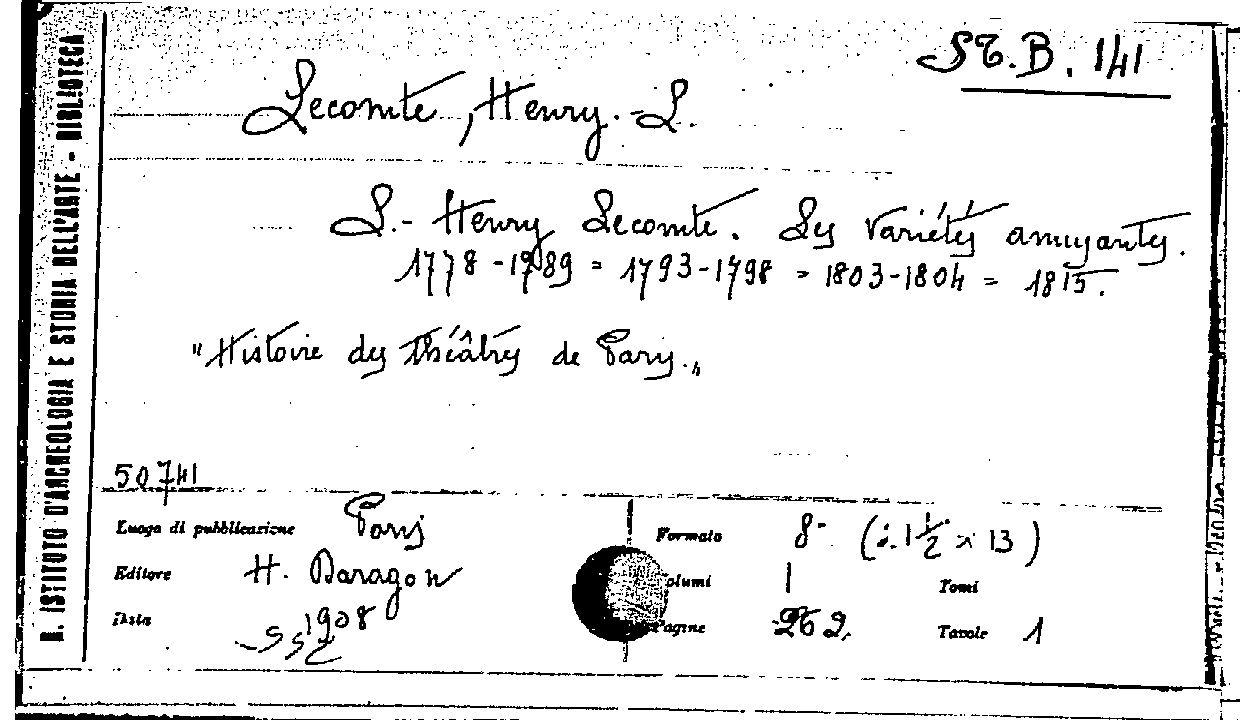 ST.B. 141
Lecomte, Henry-L.
L.- Henry Lecomte. Les Variétés amusantes.
1778-1789 = 1793-1798 = 1803-1804 = 1815.
"Histoire des Théâtres de Paris."
50741
Luogo di pubblicazione Paris
Formato 8- 1/2 x 13)
Editore H. Daragon
olumi 1 Tomi
Data 1908
Pagine 262. Tavole 1
R. ISTITUTO D'ARCHEOLOGIA E STORIA DELL'ARTE - BIBLIOTECA